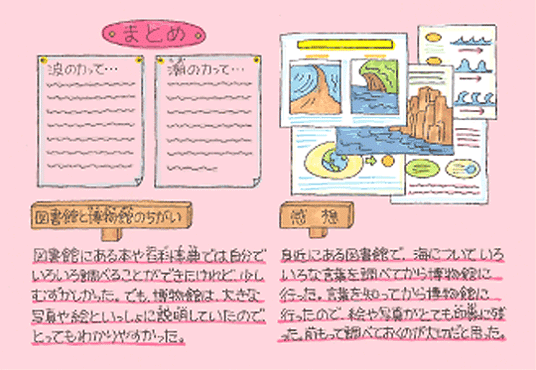 まとめ
波の力って…
潮の力って…
図書館と博物館のちがい
図書館にある本や百科事典では自分で
いろいろ調べることができたけれど、少し
むずかしかった。でも、博物館は、大きな
写真や絵といっしょに説明していたので
とってもわかりやすかった。
感想
身近にある図書館で、海についていろ
いろな言葉を調べてから博物館に
行った。言葉を知ってから博物館に
行ったので、絵や写真がとても印象に残
った。前もって調べておくのが大切だと思った。